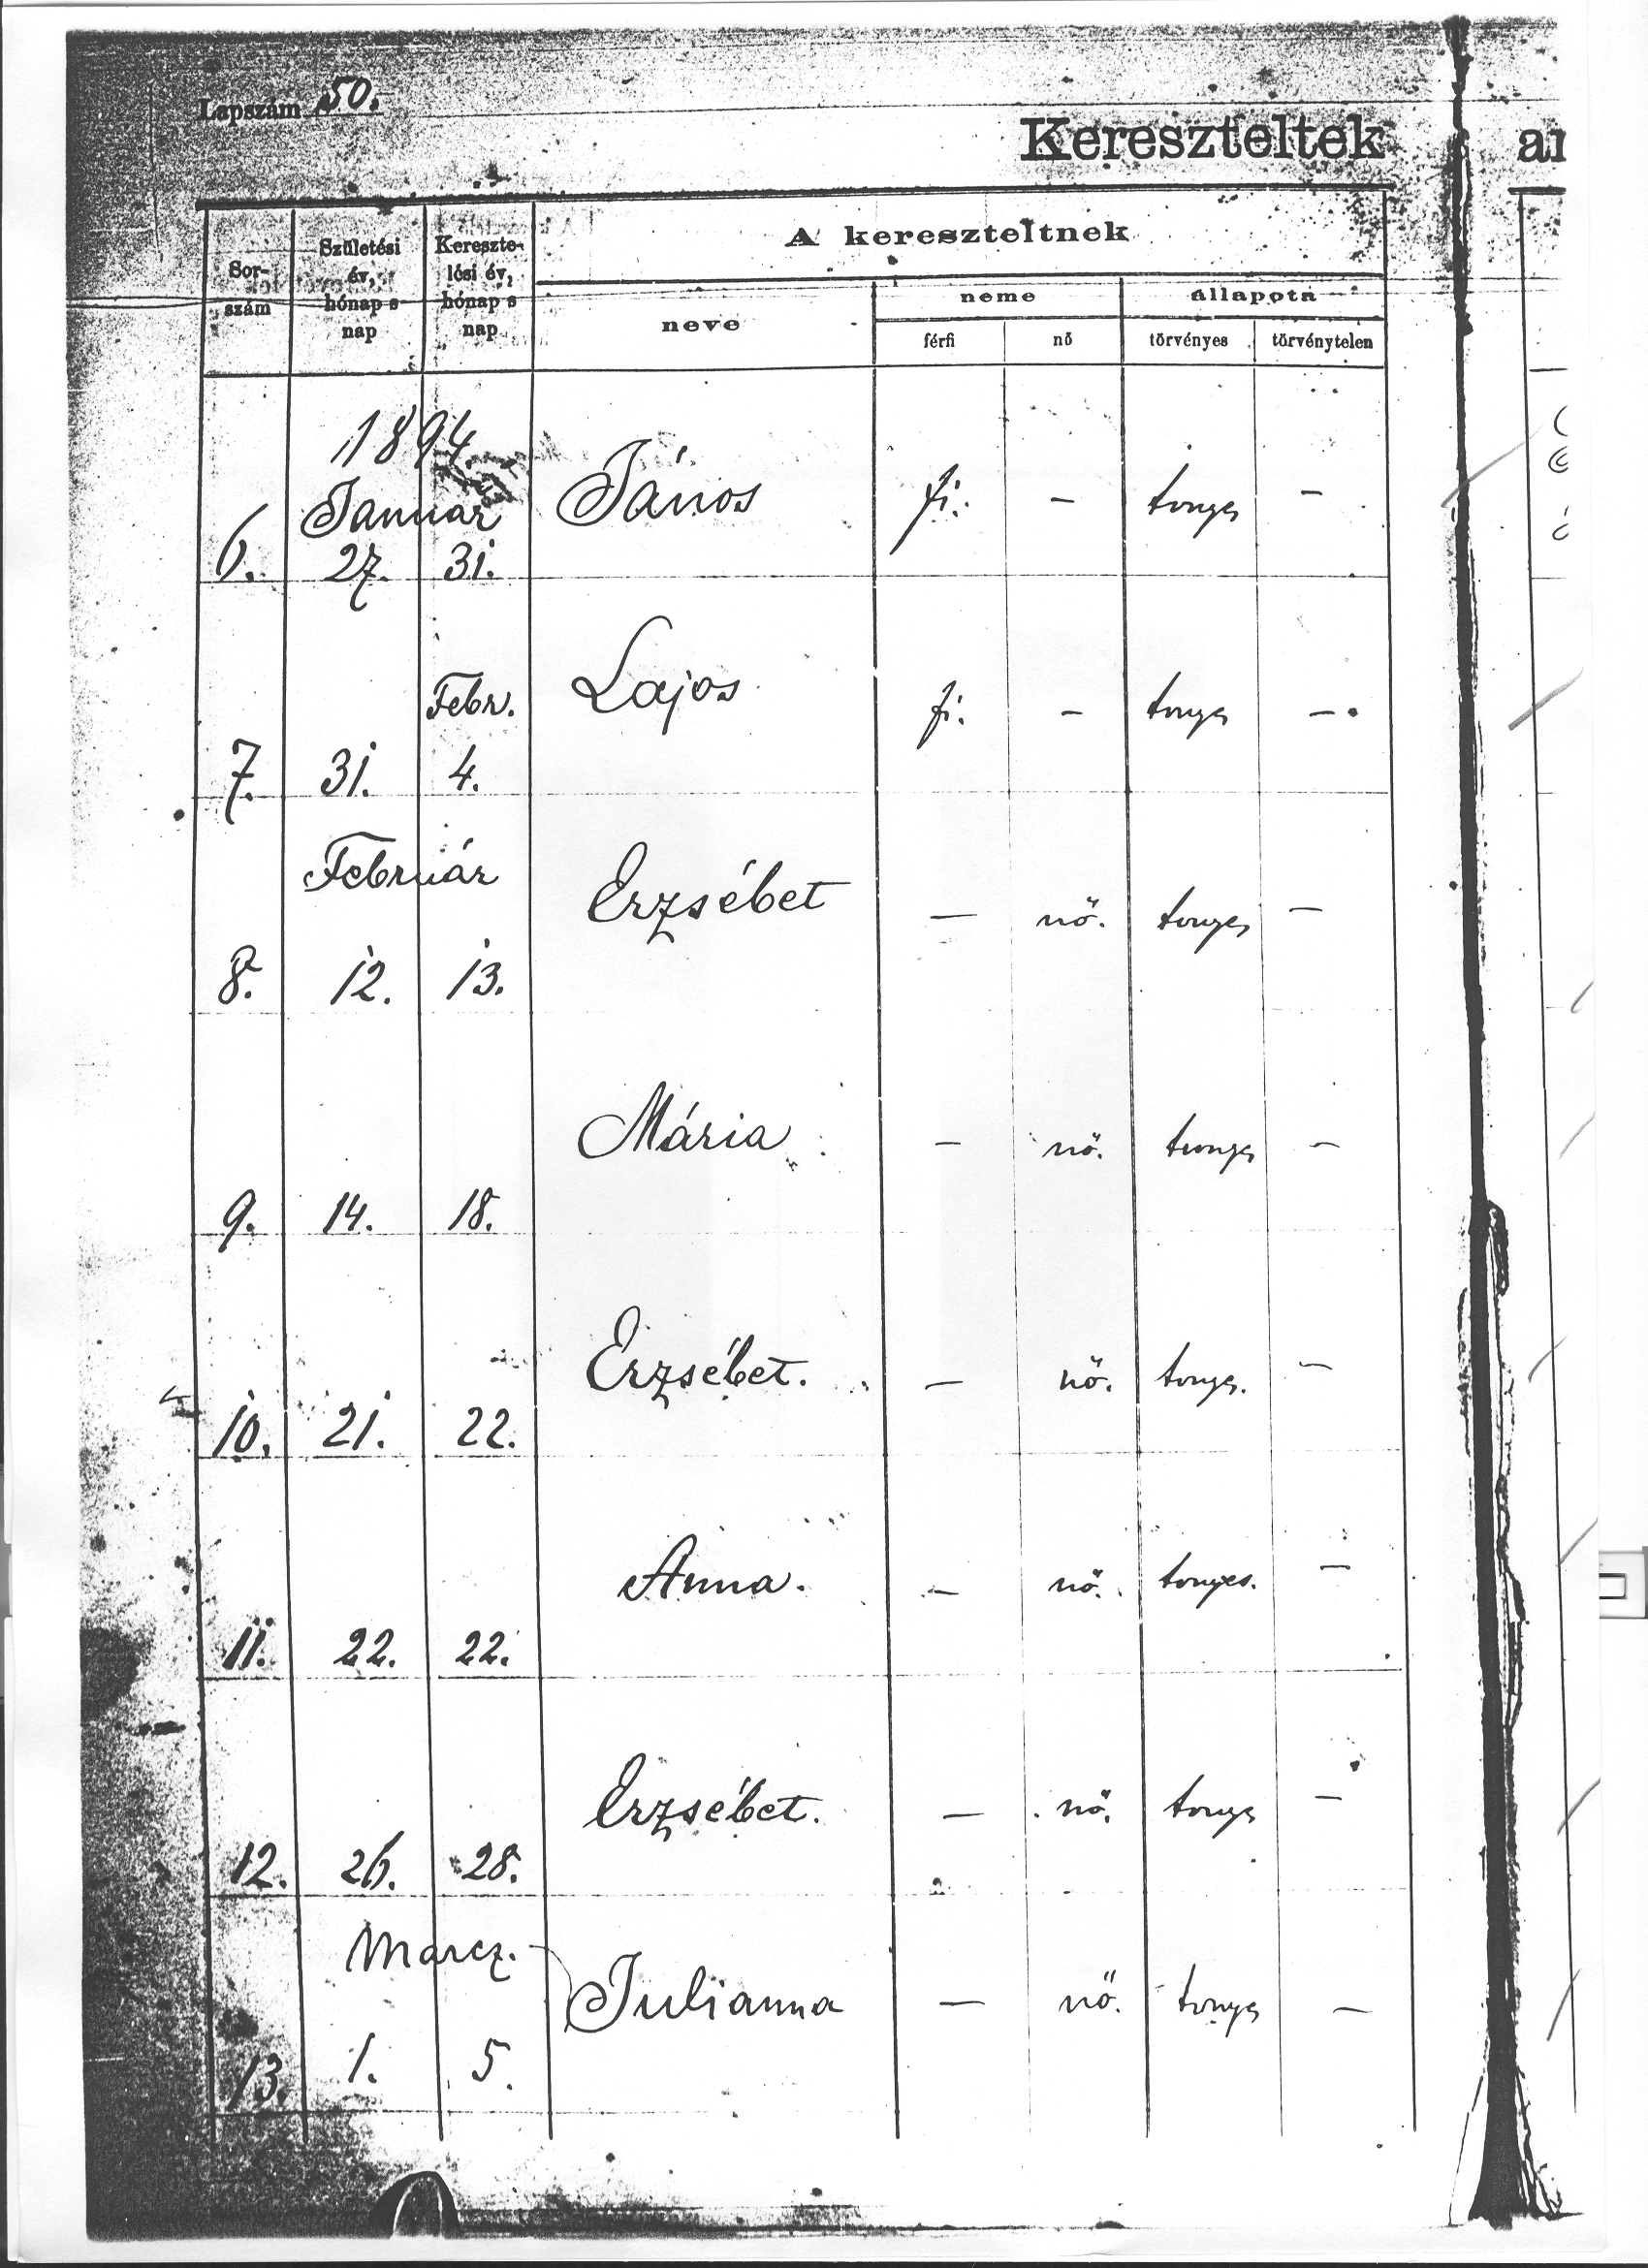 Lapszám 50.
Kereszteltek
Sor-
szám
Születési
év,
hónap s
nap
Kereszte-
lési év,
hónap s
nap
A kereszteltnek
neve
neme
állapota
férfi
nő
törvényes
törvénytelen
1894
Januar
6. 27. 31. János fi. – tvnyes –
Febr.
7. 31. 4. Lajos fi. – tvnyes –
Február
8. 12. 13. Erzsébet – nő. tvnyes –
9. 14. 18. Mária – nő. tvnyes –
10. 21. 22. Erzsébet. – nő. tvnyes. –
11. 22. 22. Anna. – nő. tvnyes. –
12. 26. 28. Erzsébet. – nő. tvnyes –
Marcz.
13. 1. 5. Julianna – nő. tvnyes –